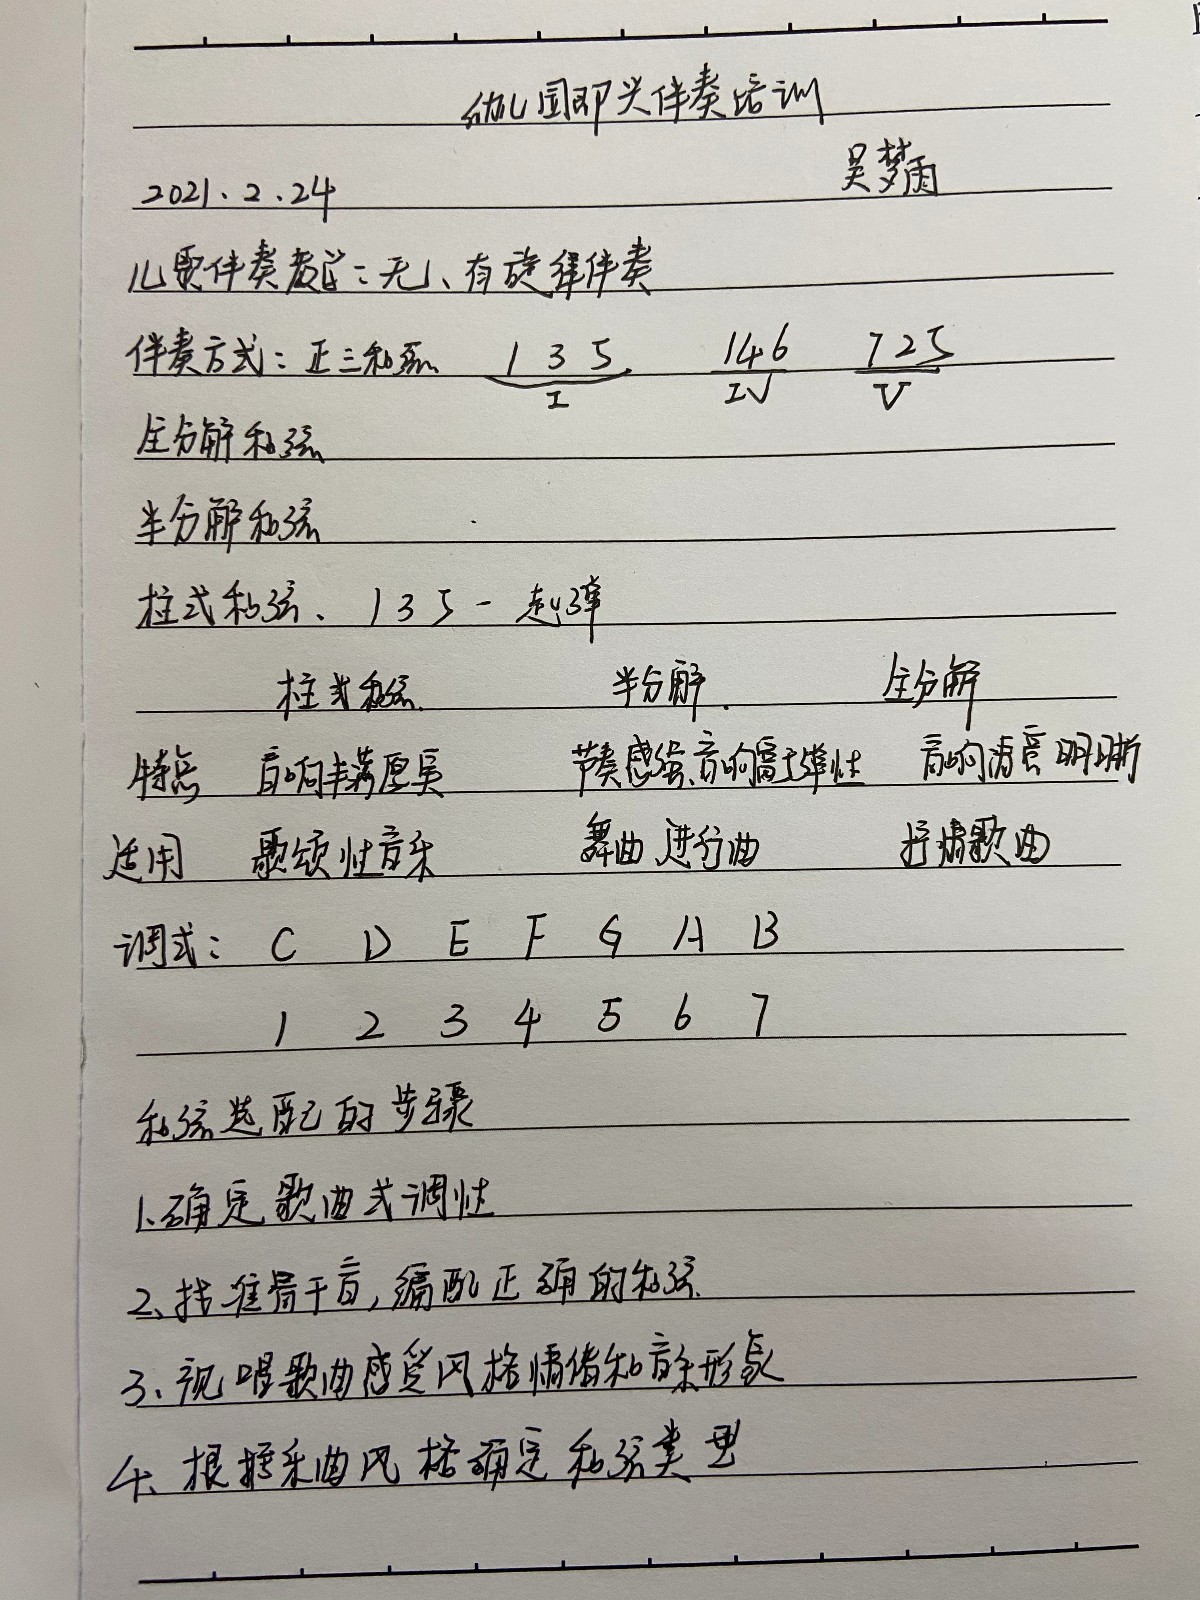 幼儿园即兴伴奏培训
2021.2.24 吴梦雨
儿歌伴奏：无、有旋律伴奏
伴奏方式：正三和弦 1 3 5 1 4 6 7 2 5
I IV V
全分解和弦
半分解和弦
柱式和弦、1 3 5 一起弹
柱式和弦 半分解 全分解
特点 音响丰满厚实 节奏感强、音响富于弹性 音响清晰
适用 歌颂性音乐 舞曲 进行曲 抒情歌曲
调式：C D E F G A B
1 2 3 4 5 6 7
和弦选配的步骤
1、确定歌曲式调性
2、找准骨干音，编配正确的和弦
3、视唱歌曲感受风格情绪和音乐形象
4、根据乐曲风格确定和弦类型